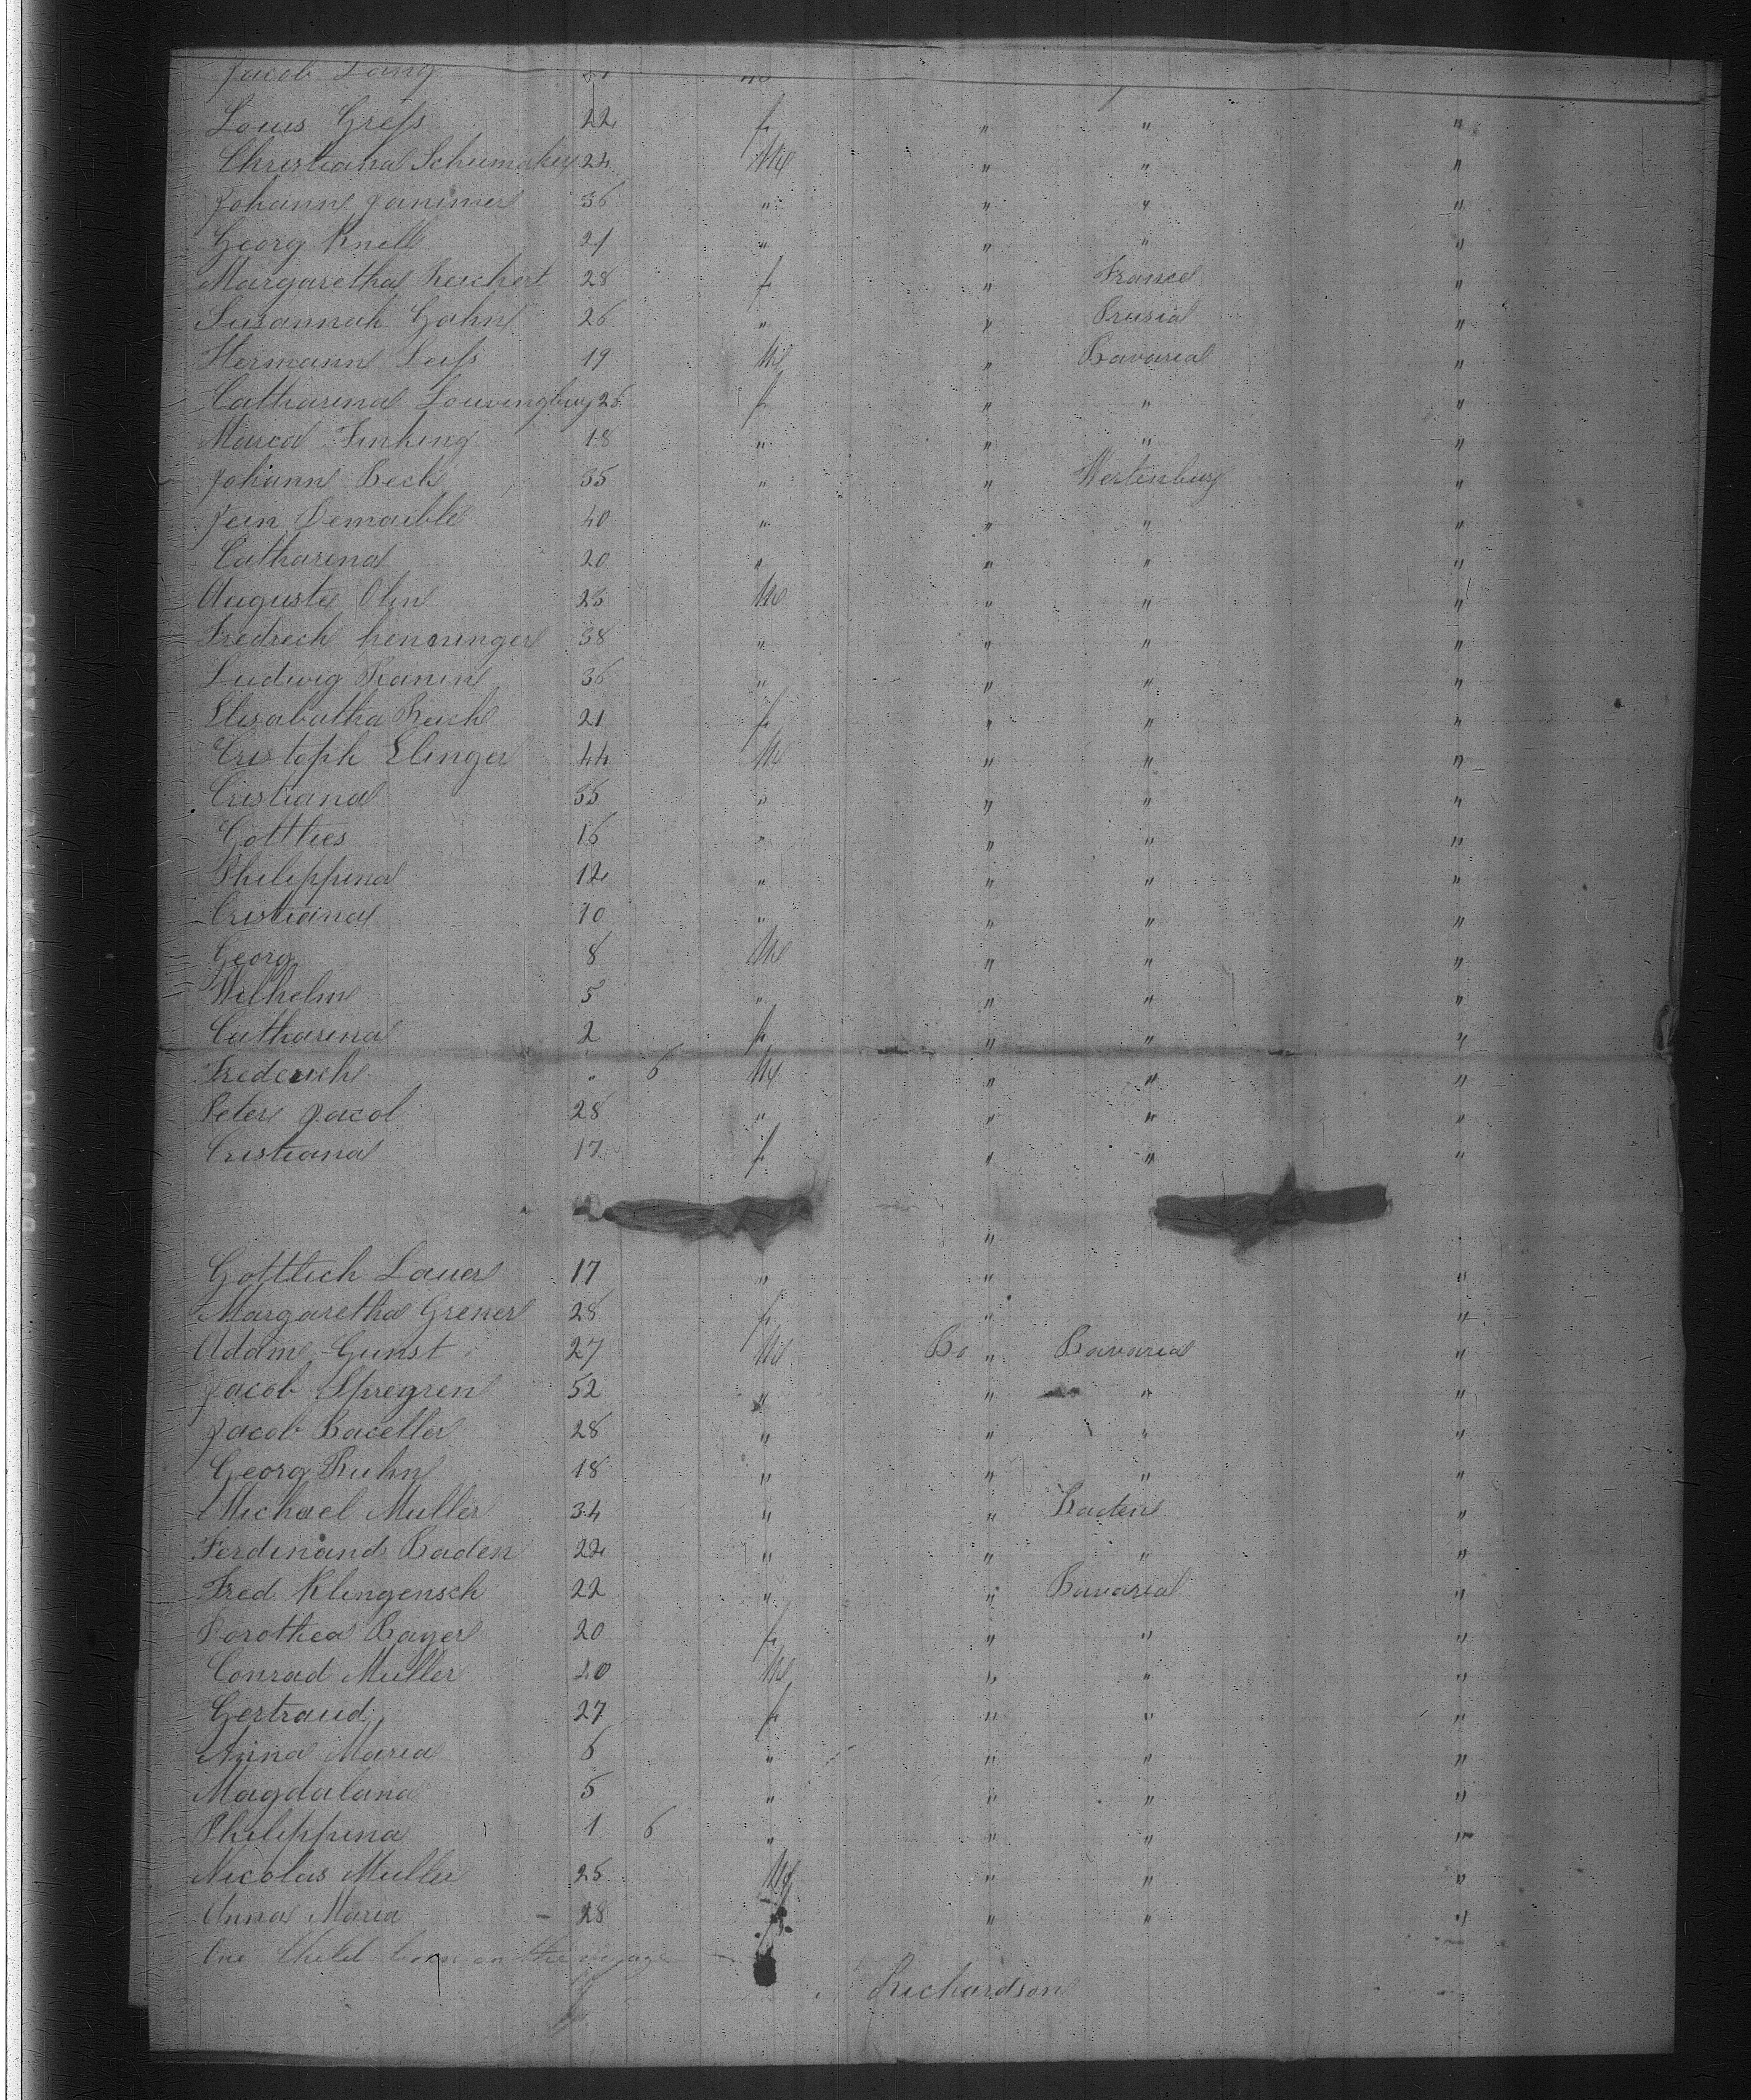 Jacob Lang
Louis Greſs 22 f " " "
Christiana Schumaker 24 M " " "
Johann Jammer 36 " " " "
Georg Knell 21 " " " "
Margaretha Reichert 28 f " France "
Susannah Gahn 26 " " Prusia "
Hermann Leiſs 19 M " Bavaria "
Catharina Louvingburg 25 f " " "
Maria Finking 18 " " " "
Johann Beck 35 " " Wertenburg "
Jein Demaible 40 " " " "
Catharina 20 " " " "
Auguste Olin 23 M " " "
Fredrech henninger 38 " " " "
Ludwig Ranin 36 " " " "
Elisabatha Reich 21 f " " "
Cristoph Elinger 44 M " " "
Cristiana 35 " " " "
Gottlies 16 " " " "
Philippina 12 " " " "
Cristiana 10 " " " "
Georg 8 M " " "
Wilhelm 5 " " " "
Catharina 2 f " " "
Frederich " 6 M " " "
Peter Jacob 28 " " " "
Cristiana 17 f " " "
"
Gottlich Lauer 17 " " "
Margaretha Grener 28 f " "
Adam Gunst 27 M Do " Bavaria "
Jacob Spregren 52 " " " "
Jacob Baceller 28 " " " "
Georg Kuhn 18 " " " "
Michael Muller 34 " " Baden "
Ferdinand Baden 22 " " " "
Fred Klingensch 22 " " Bavaria "
Dorothea Bayer 20 f " " "
Conrad Muller 40 M " " "
Gertraud 27 f " " "
Anna Maria 6 " " " "
Magdalana 5 " " " "
Philippina 1 6 " " " "
Nicolas Muller 25 M " " "
Anna Maria 28 " " "
One Child born on the voyage
Richardson